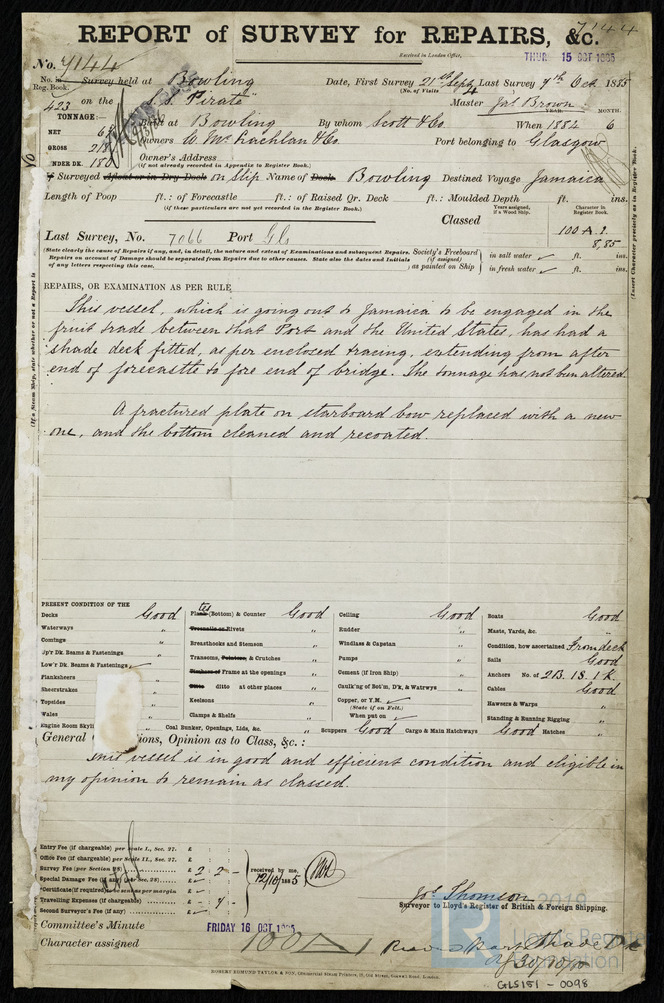 REPORT of SURVEY for REPAIRS, &c. 7144
Received in London Office, THUR 15 OCT 1885
No. 7144
No. in Survey held at Bowling Date, First Survey 21st Sept Last Survey 9th Oct 1885
Reg. Book. (No. of Visits 4)
423 on the S. "Pirate" Master Jas Brown
TONNAGE:— YEAR. MONTH.
Built at Bowling By whom Scott & Co. When 1884 6
NET
GROSS Owners W. McLachlan & Co. Port belonging to Glasgow
UNDER DK. Owner's Address
(if not already recorded in Appendix to Register Book.)
If Surveyed Afloat or in Dry Dock on Slip Name of Dock Bowling Destined Voyage Jamaica
Length of Poop ft.: of Forecastle ft.: of Raised Qr. Deck ft.: Moulded Depth ft. ins.
(if these particulars are not yet recorded in the Register Book.)
Years assigned, if a Wood Ship. Character in Register Book.
Classed 100 A.1.
8,85
Last Survey, No. 7066 Port Gls
(State clearly the cause of Repairs if any, and, in detail, the nature and extent of Examinations and subsequent Repairs. Repairs on account of Damage should be separated from Repairs due to other causes. State also the dates and Initials of any letters respecting this case.
Society's Freeboard (if assigned) as painted on Ship
in salt water ft. ins.
in fresh water ft. ins.
(Insert Character precisely as in Register Book.
REPAIRS, OR EXAMINATION AS PER RULE
This vessel, which is going out to Jamaica to be engaged in the
fruit trade between that Port and the United States, has had a
shade deck fitted, as per enclosed tracing, extending from after
end of forecastle to fore end of bridge. The tonnage has not been altered.
A fractured plate on starboard bow replaced with a new
one, and the bottom cleaned and recoated.
PRESENT CONDITION OF THE
Decks Good
Waterways "
Comings "
Up'r Dk. Beams & Fastenings "
Low'r Dk. Beams & Fastenings
Planksheers "
Sheerstrakes "
Topsides "
Wales "
Engine Room Skyli
Plank tes (Bottom) & Counter Good
Treenails or Rivets "
Breasthooks and Stemson "
Transoms, Pointers, & Crutches "
Timbers of Frame at the openings "
Ditto ditto at other places "
Keelsons "
Clamps & Shelfs "
Coal Bunker, Openings, Lids, &c. "
Ceiling Good
Rudder "
Windlass & Capstan "
Pumps "
Cement (if Iron Ship) "
Caulk'ng of Bot'm, D'k, & Watrwys "
Copper, or Y.M.
(State if on Felt.)
When put on
Scuppers Good
Boats Good
Masts, Yards, &c. "
Condition, how ascertained From deck
Sails Good
Anchors No. of 2B. 1S. 1K.
Cables Good
Hawsers & Warps "
Standing & Running Rigging "
Cargo & Main Hatchways Good Hatches "
General tions, Opinion as to Class, &c. :
This vessel is in good and efficient condition and eligible in
my opinion to remain as classed.
Entry Fee (if chargeable) per Scale I., Sec. 27. £ : :
Office Fee (if chargeable) per Scale II., Sec. 27. £ : :
Survey Fee (per Section 28) £ 2 : 2 : -
Special Damage Fee (if any) (per Sec. 28) £
*Certificate (if required) as per margin £
Travelling Expenses (if chargeable) £ - : 4 : -
Second Surveyor's Fee (if any) £
received by me, 12/10/1885
Jos. Thomson
Surveyor to Lloyd's Register of British & Foreign Shipping.
Committee's Minute FRIDAY 16 OCT 1885
Character assigned 100 A1
ROBERT EDMUND TAYLOR & SON, Commercial Steam Printers, 19, Old Street, Goswell Road, London.
2019
Lloyd's Register
Foundation
GLS151 - 0098